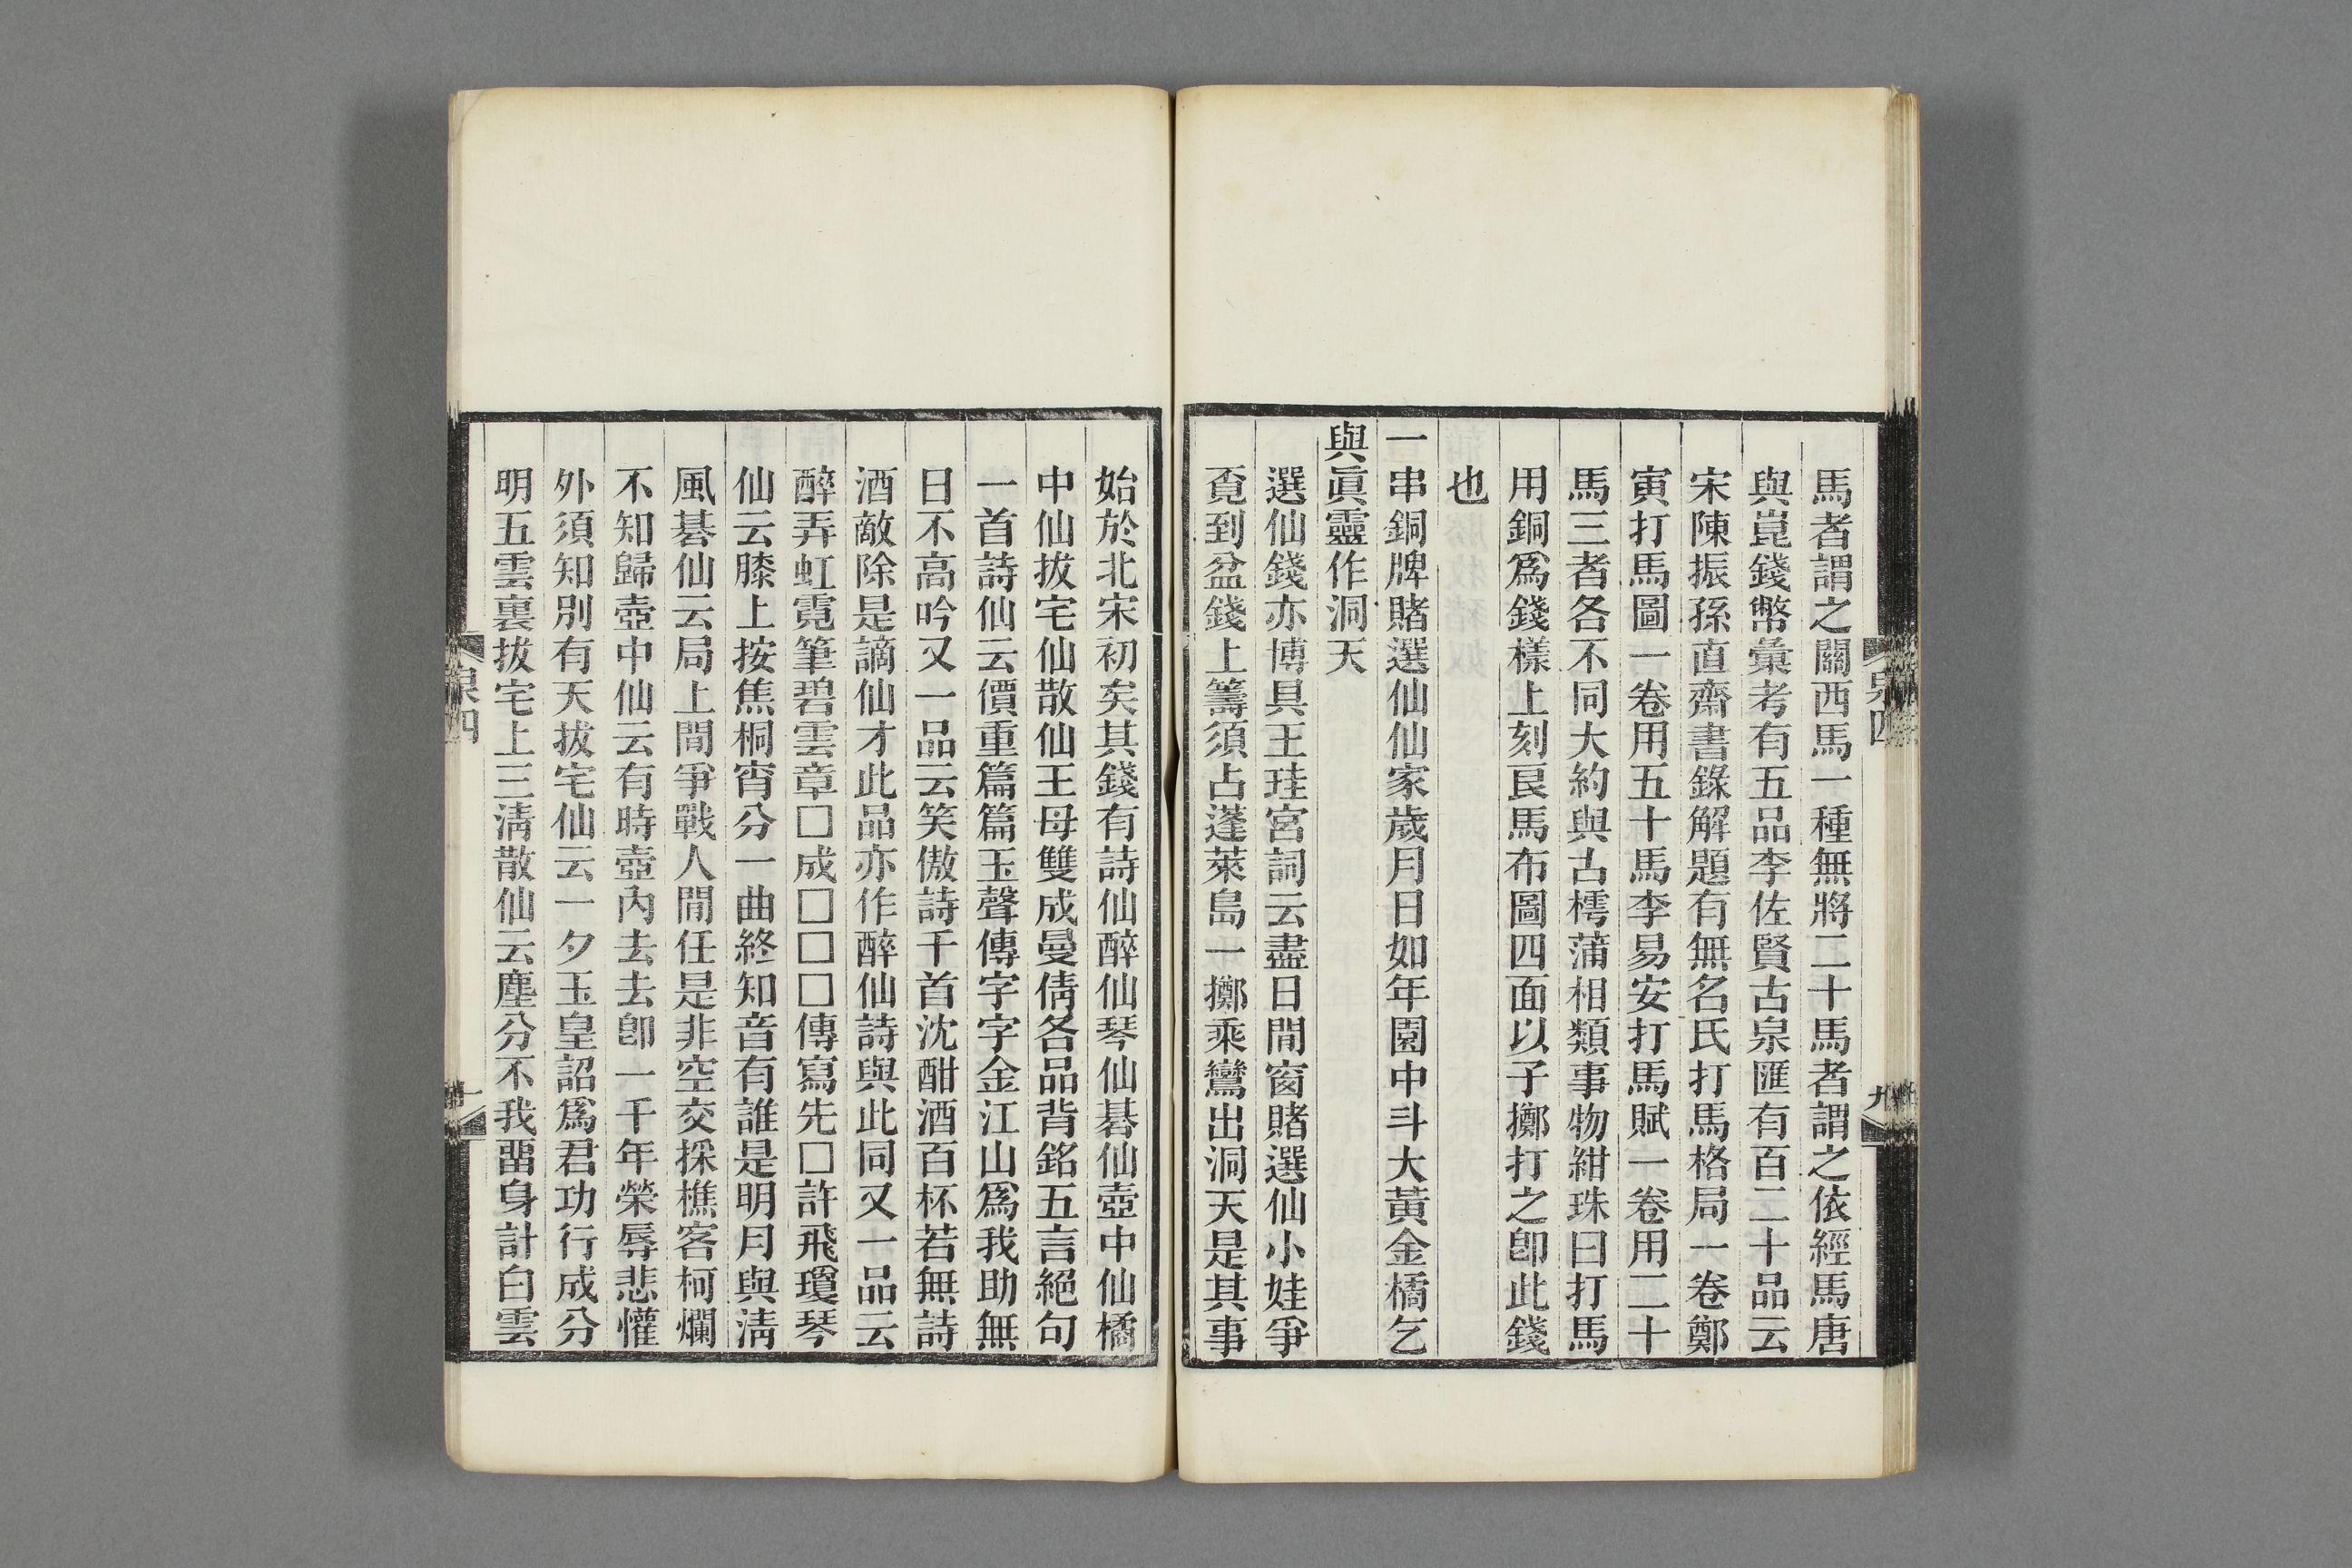 馬者謂之關西馬一種無將二十馬者謂之依經馬唐
與崑錢幣彙考有五品李佐賢古泉匯有百二十品云
宋陳振孫直齋書錄解題有無名氏打馬格局一卷鄭
寅打馬圖一卷用五十馬李易安打馬賦一卷用二十
馬三者各不同大約與古樗蒲相類事物紺珠曰打馬
用銅爲錢樣上刻良馬布圖四面以子擲打之卽此錢
也
一串銅牌賭選仙仙家歲月日如年園中斗大黃金橘乞
與眞靈作洞天
選仙錢亦博具王珪宮詞云盡日閒窗賭選仙小娃爭
覔到盆錢上籌須占蓬萊島一擲乘鸞出洞天是其事
泉四
九
始於北宋初矣其錢有詩仙醉仙琴仙碁仙壺中仙橘
中仙拔宅仙散仙王母雙成曼倩各品背銘五言絕句
一首詩仙云價重篇篇玉聲傳字字金江山爲我助無
日不高吟又一品云笑傲詩千首沈酣酒百杯若無詩
酒敵除是謫仙才此品亦作醉仙詩與此同又一品云
醉弄虹霓筆碧雲章□成□□□傳寫先□許飛瓊琴
仙云膝上按焦桐宵分一曲終知音有誰是明月與淸
風碁仙云局上閒爭戰人閒任是非空交採樵客柯爛
不知歸壺中仙云有時壺內去去卽一千年榮辱悲懽
外須知別有天拔宅仙云一夕玉皇詔爲君功行成分
明五雲裏拔宅上三淸散仙云塵分不我畱身計白雲
泉四